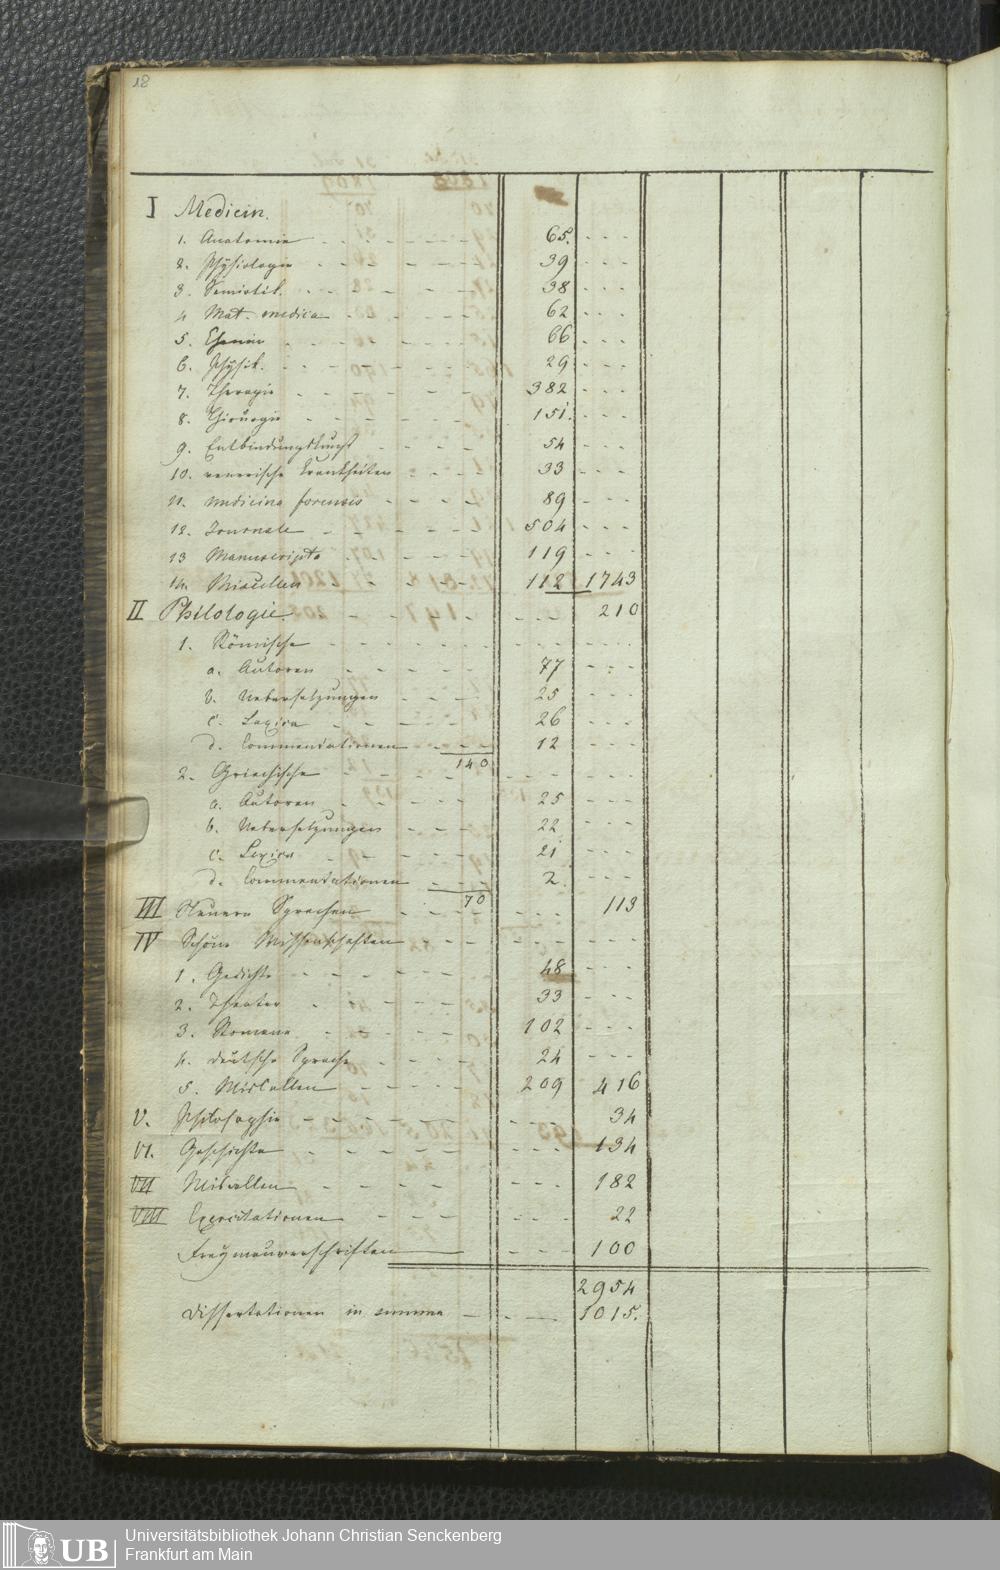 18
I Medicin.
1. Anatomie 65.
2. Physiologie 39
3. Semiotik. 38
4 Mat. medica 62
5. Chemie 66
6. Physik. 29
7. Therapie 382
8. Chirurgie 151.
9. Entbindungskunst 54
10. venerische Krankheiten 33
11. medicina forensis 89
12. Journale 504
13 Manuscripta 119
14. Miscellen 112 1743
II Philologie. 210
1. Römische
a. Autoren 77
b. Uebersetzungen 25
c. Lexica 26
d. Commentationen 12
140
2. Griechische
a. Autoren 25
b. Uebersetzungen 22
c. Lexica 21
d. Commentationen 2.
70
III Neuere Sprachen 113
IV Schöne Wissenschaften
1. Gedichte 48
2. Theater 33
3. Romane 102
4. deutsche Sprache 24
5. Miscellen 209 416
V. Philosophie 34
VI. Geschichte 134
VII Miscellen 182
VIII Exercitationen 22
Freymaurerschriften 100
2954
Dissertationen in summa 1015.
UB
Universitätsbibliothek Johann Christian Senckenberg
Frankfurt am Main